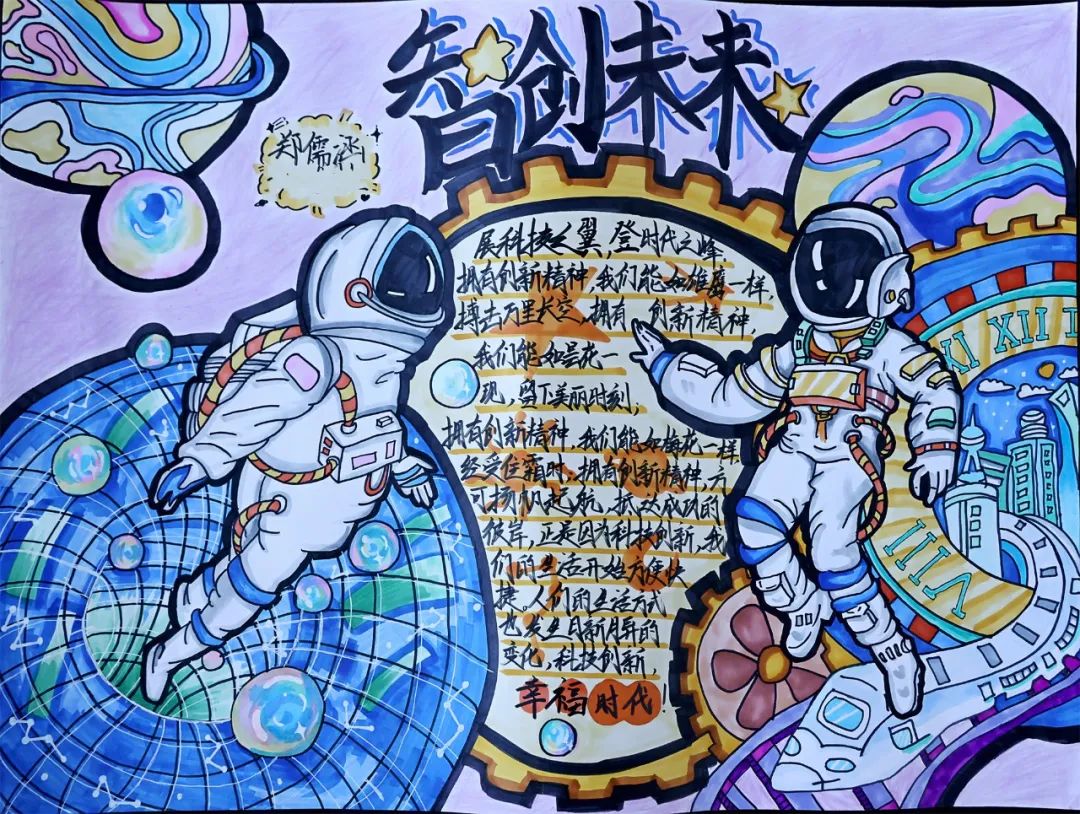 智创未来
郑儒
展科技之翼,登时代之峰.
拥有创新精神,我们能如雄鹰一样,
搏击万里长空,拥有 创新精神,
我们能如昙花一
现,留下美丽时刻,
拥有创新精神,我们能如梅花一样
经受住霜时,拥有创新精神,方
可扬帆起航,抵达成功的
彼岸,正是因为科技创新,我
们的生活开始方便快
捷。人们的生活方式
也发生日新月异的
变化,科技创新,
幸福时代!
XI XII I
VIIII